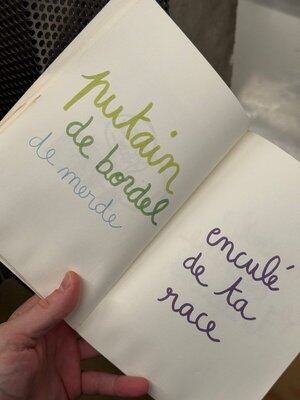 putain
de bordel
de merde
enculé
de ta
race